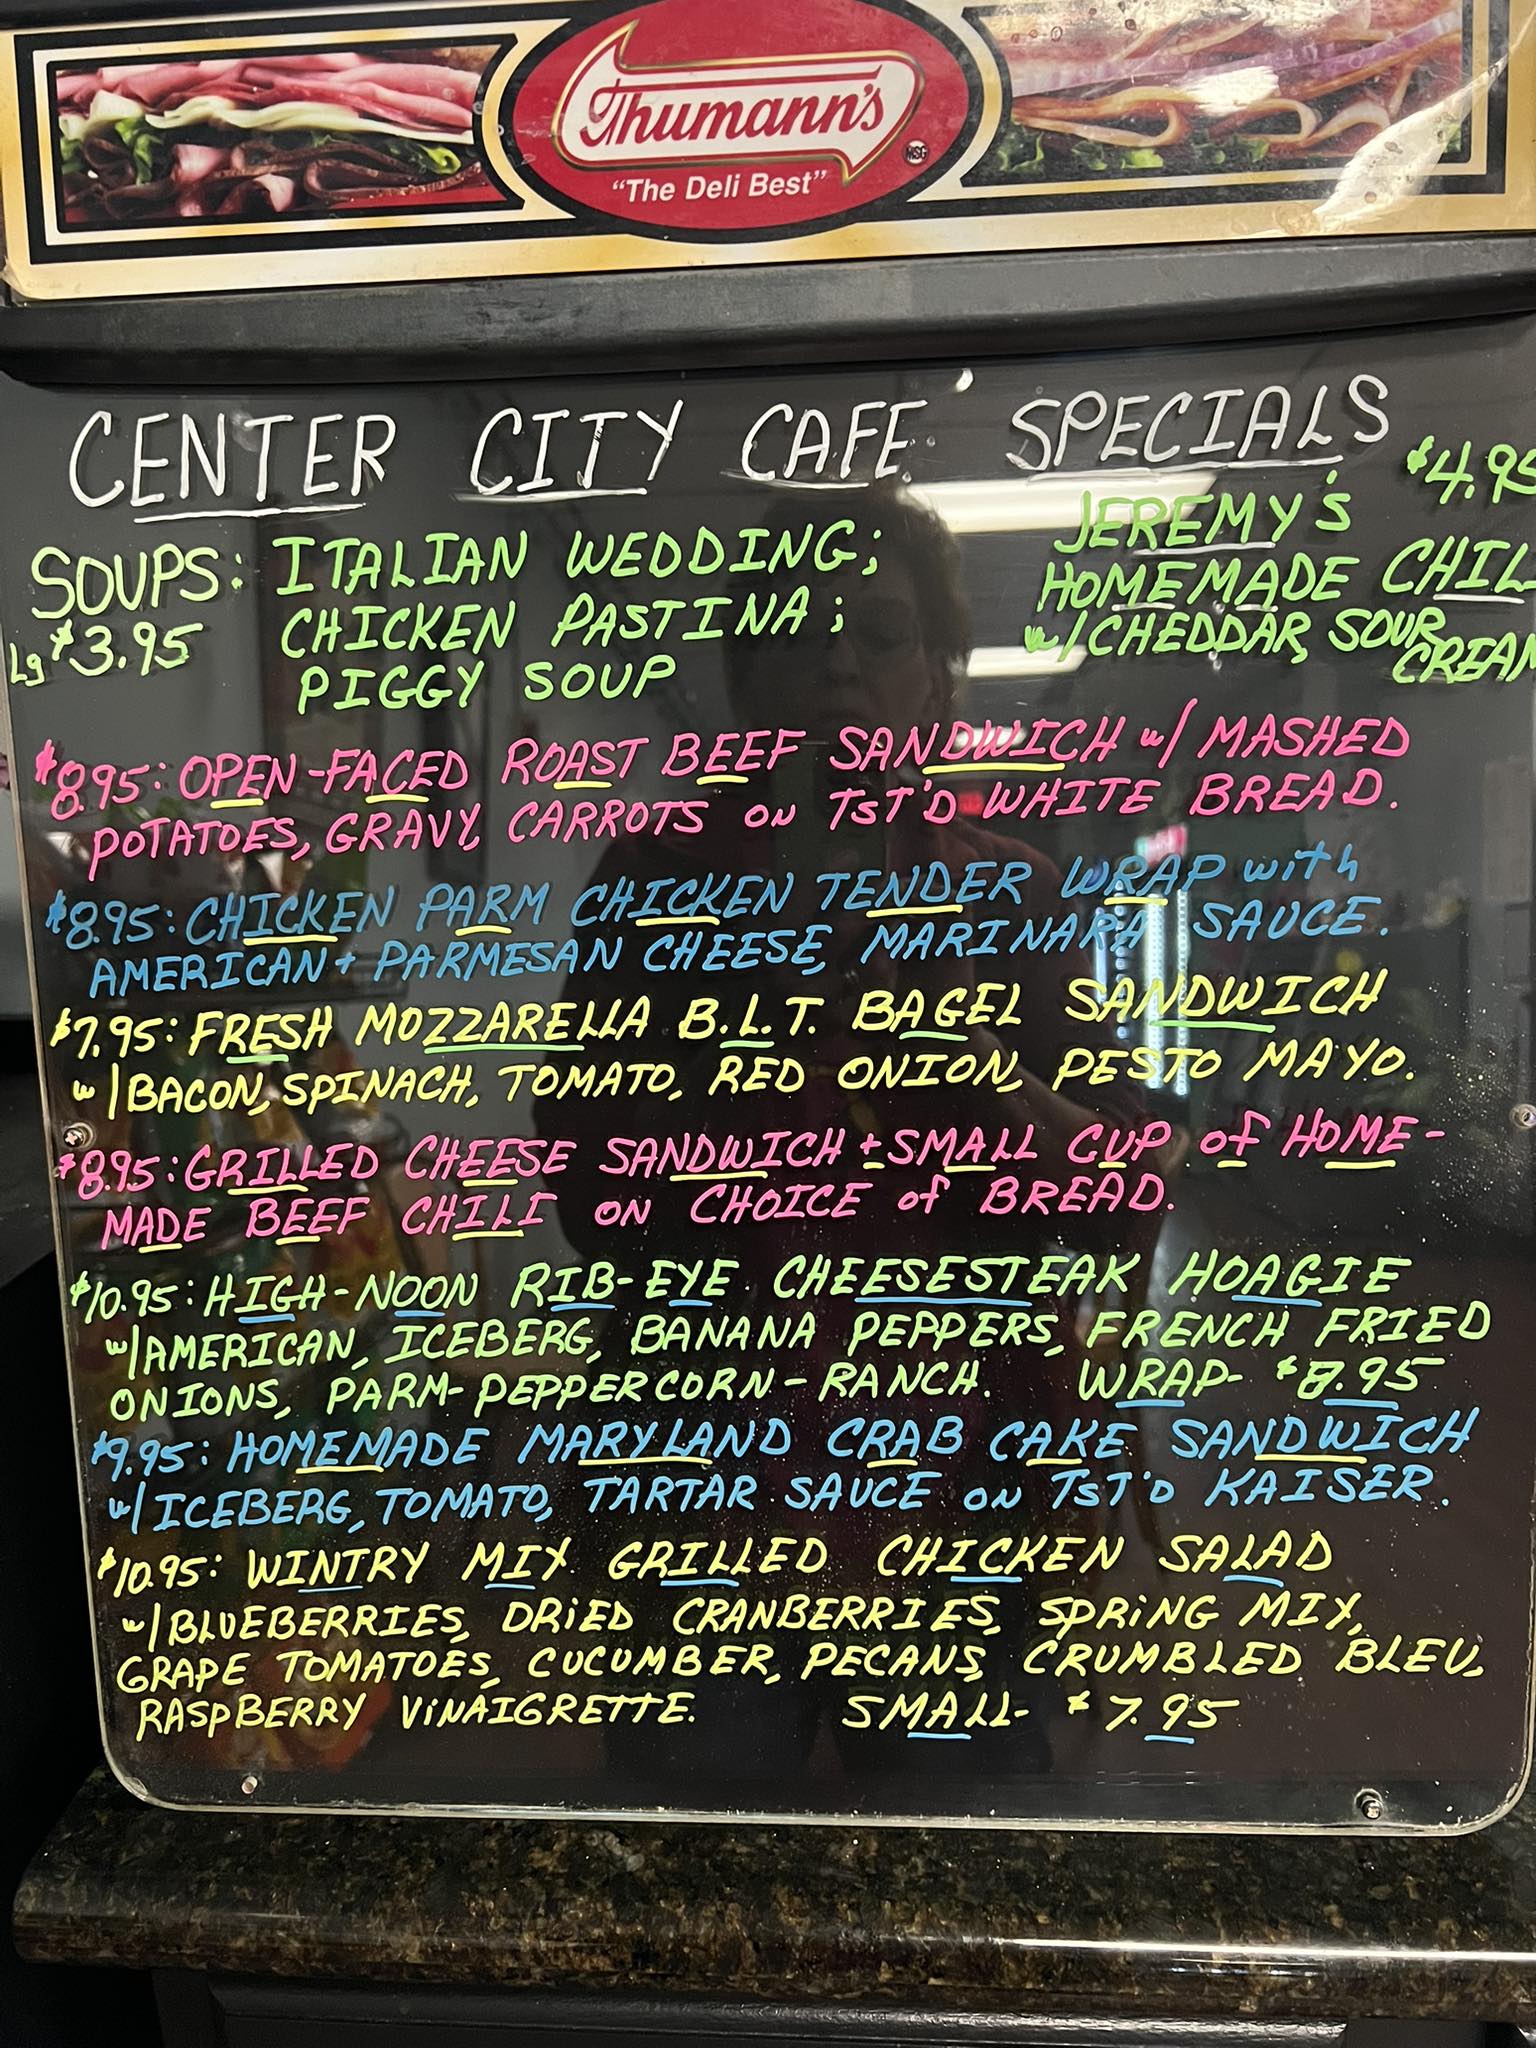 Thumann's
MSG
"The Deli Best"
CENTER CITY CAFE SPECIALS
SOUPS: ITALIAN WEDDING;
Lg $3.95 CHICKEN PASTINA;
PIGGY SOUP
$4.95
JEREMY'S
HOMEMADE CHIL
w/CHEDDAR, SOUR
CREAM
$8.95: OPEN-FACED ROAST BEEF SANDWICH w/ MASHED
POTATOES, GRAVY, CARROTS ON TST'D WHITE BREAD.
$8.95: CHICKEN PARM CHICKEN TENDER WRAP with
AMERICAN + PARMESAN CHEESE, MARINARA SAUCE.
$7.95: FRESH MOZZARELLA B.L.T. BAGEL SANDWICH
w/BACON, SPINACH, TOMATO, RED ONION, PESTO MAYO.
$8.95: GRILLED CHEESE SANDWICH + SMALL CUP of HOME-
MADE BEEF CHILI ON CHOICE of BREAD.
$10.95: HIGH-NOON RIB-EYE CHEESESTEAK HOAGIE
w/AMERICAN, ICEBERG, BANANA PEPPERS, FRENCH FRIED
ONIONS, PARM-PEPPERCORN-RANCH. WRAP- $8.95
$9.95: HOMEMADE MARYLAND CRAB CAKE SANDWICH
w/ICEBERG, TOMATO, TARTAR SAUCE ON TST'D KAISER.
$10.95: WINTRY MIX GRILLED CHICKEN SALAD
w/BLUEBERRIES, DRIED CRANBERRIES, SPRING MIX,
GRAPE TOMATOES, CUCUMBER, PECANS, CRUMBLED BLEU,
RASPBERRY VINAIGRETTE. SMALL- $7.95